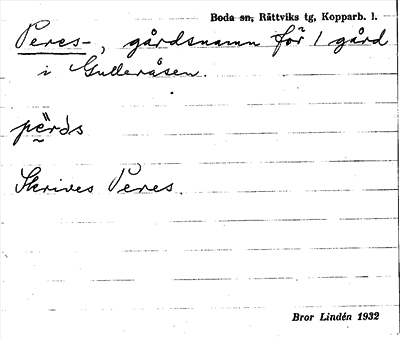 Boda sn, Rättviks tg, Kopparb. l.
Peres-, gårdsnamn för 1 gård
i Gulleråsen.
pe̤̎rds
Skrives Peres.
Bror Lindén 1932